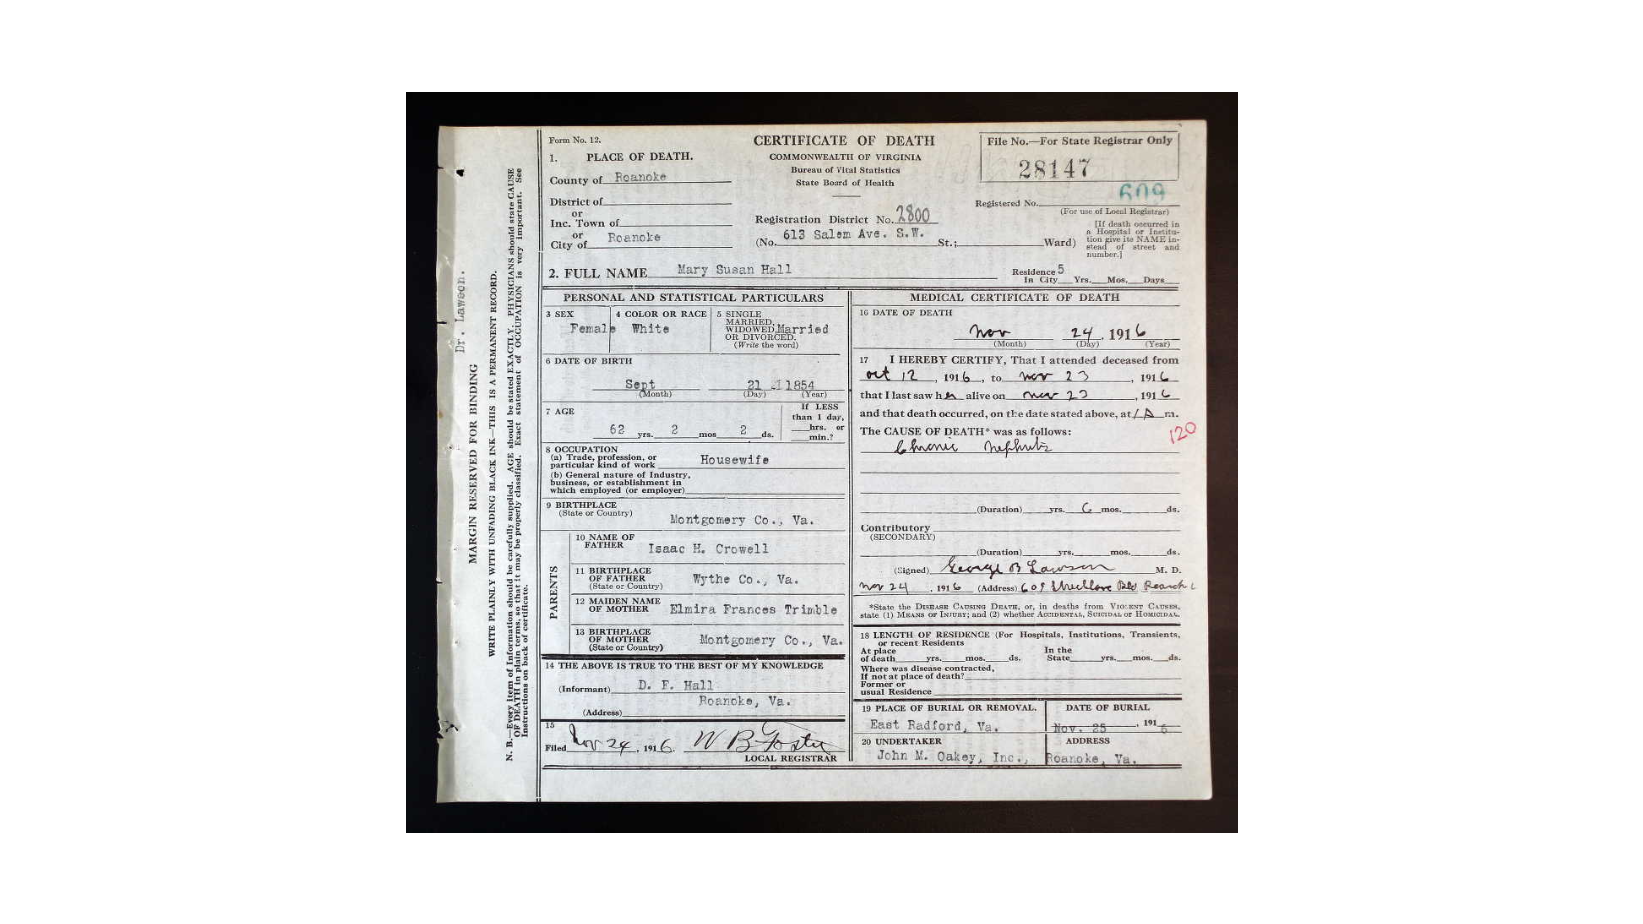 Form No. 12.
CERTIFICATE OF DEATH
COMMONWEALTH OF VIRGINIA
Bureau of Vital Statistics
State Board of Health
File No.—For State Registrar Only
28147
609
Registered No.
(For use of Local Registrar)
[If death occurred in
a Hospital or Institu-
tion give its NAME in-
stead of street and
number.]
1. PLACE OF DEATH.
County of Roanoke
District of
or
Inc. Town of
or
City of Roanoke
Registration District No. 2800
(No. 613 Salem Ave. S.W. St.; Ward)
2. FULL NAME Mary Susan Hall
Residence 5
In City Yrs. Mos. Days
PERSONAL AND STATISTICAL PARTICULARS
3 SEX
Female
4 COLOR OR RACE
White
5 SINGLE
MARRIED,
WIDOWED, Married
OR DIVORCED.
(Write the word)
6 DATE OF BIRTH
Sept 21 1854
(Month) (Day) (Year)
7 AGE
62 yrs. 2 mos 2 ds.
If LESS
than 1 day,
hrs. or
min.?
8 OCCUPATION
(a) Trade, profession, or
particular kind of work Housewife
(b) General nature of Industry,
business, or establishment in
which employed (or employer)
9 BIRTHPLACE
(State or Country)
Montgomery Co., Va.
PARENTS
10 NAME OF
FATHER Isaac H. Crowell
11 BIRTHPLACE
OF FATHER
(State or Country) Wythe Co., Va.
12 MAIDEN NAME
OF MOTHER Elmira Frances Trimble
13 BIRTHPLACE
OF MOTHER
(State or Country) Montgomery Co., Va.
14 THE ABOVE IS TRUE TO THE BEST OF MY KNOWLEDGE
(Informant) D. F. Hall
Roanoke, Va.
(Address)
15
Filed Nov 24, 1916. W B Foster
LOCAL REGISTRAR
MEDICAL CERTIFICATE OF DEATH
16 DATE OF DEATH
Nov 24, 1916
(Month) (Day) (Year)
17 I HEREBY CERTIFY, That I attended deceased from
Oct 12, 1916, to Nov 23, 1916
that I last saw her alive on Nov 23, 1916
and that death occurred, on the date stated above, at 1 A m.
The CAUSE OF DEATH* was as follows:
120
Chronic Nephritis
(Duration) yrs. 6 mos. ds.
Contributory
(SECONDARY)
(Duration) yrs. mos. ds.
(Signed) George B Lawson M. D.
Nov 24, 1916 (Address)
*State the DISEASE CAUSING DEATH, or, in deaths from VIOLENT CAUSES,
state (1) MEANS OF INJURY; and (2) whether ACCIDENTAL, SUICIDAL or HOMICIDAL.
18 LENGTH OF RESIDENCE (For Hospitals, Institutions, Transients,
or recent Residents
At place In the
of death yrs. mos. ds. State yrs. mos. ds.
Where was disease contracted,
If not at place of death?
Former or
usual Residence
19 PLACE OF BURIAL OR REMOVAL.
East Radford, Va.
DATE OF BURIAL
Nov. 25, 1916
20 UNDERTAKER
John M. Oakey, Inc.,
ADDRESS
Roanoke, Va.
Dr. Lawson.
MARGIN RESERVED FOR BINDING
WRITE PLAINLY WITH UNFADING BLACK INK—THIS IS A PERMANENT RECORD.
N. B.—Every item of Information should be carefully supplied. AGE should be stated EXACTLY. PHYSICIANS should state CAUSE
OF DEATH in plain terms, so that it may be properly classified. Exact statement of OCCUPATION is very important. See
Instructions on back of certificate.